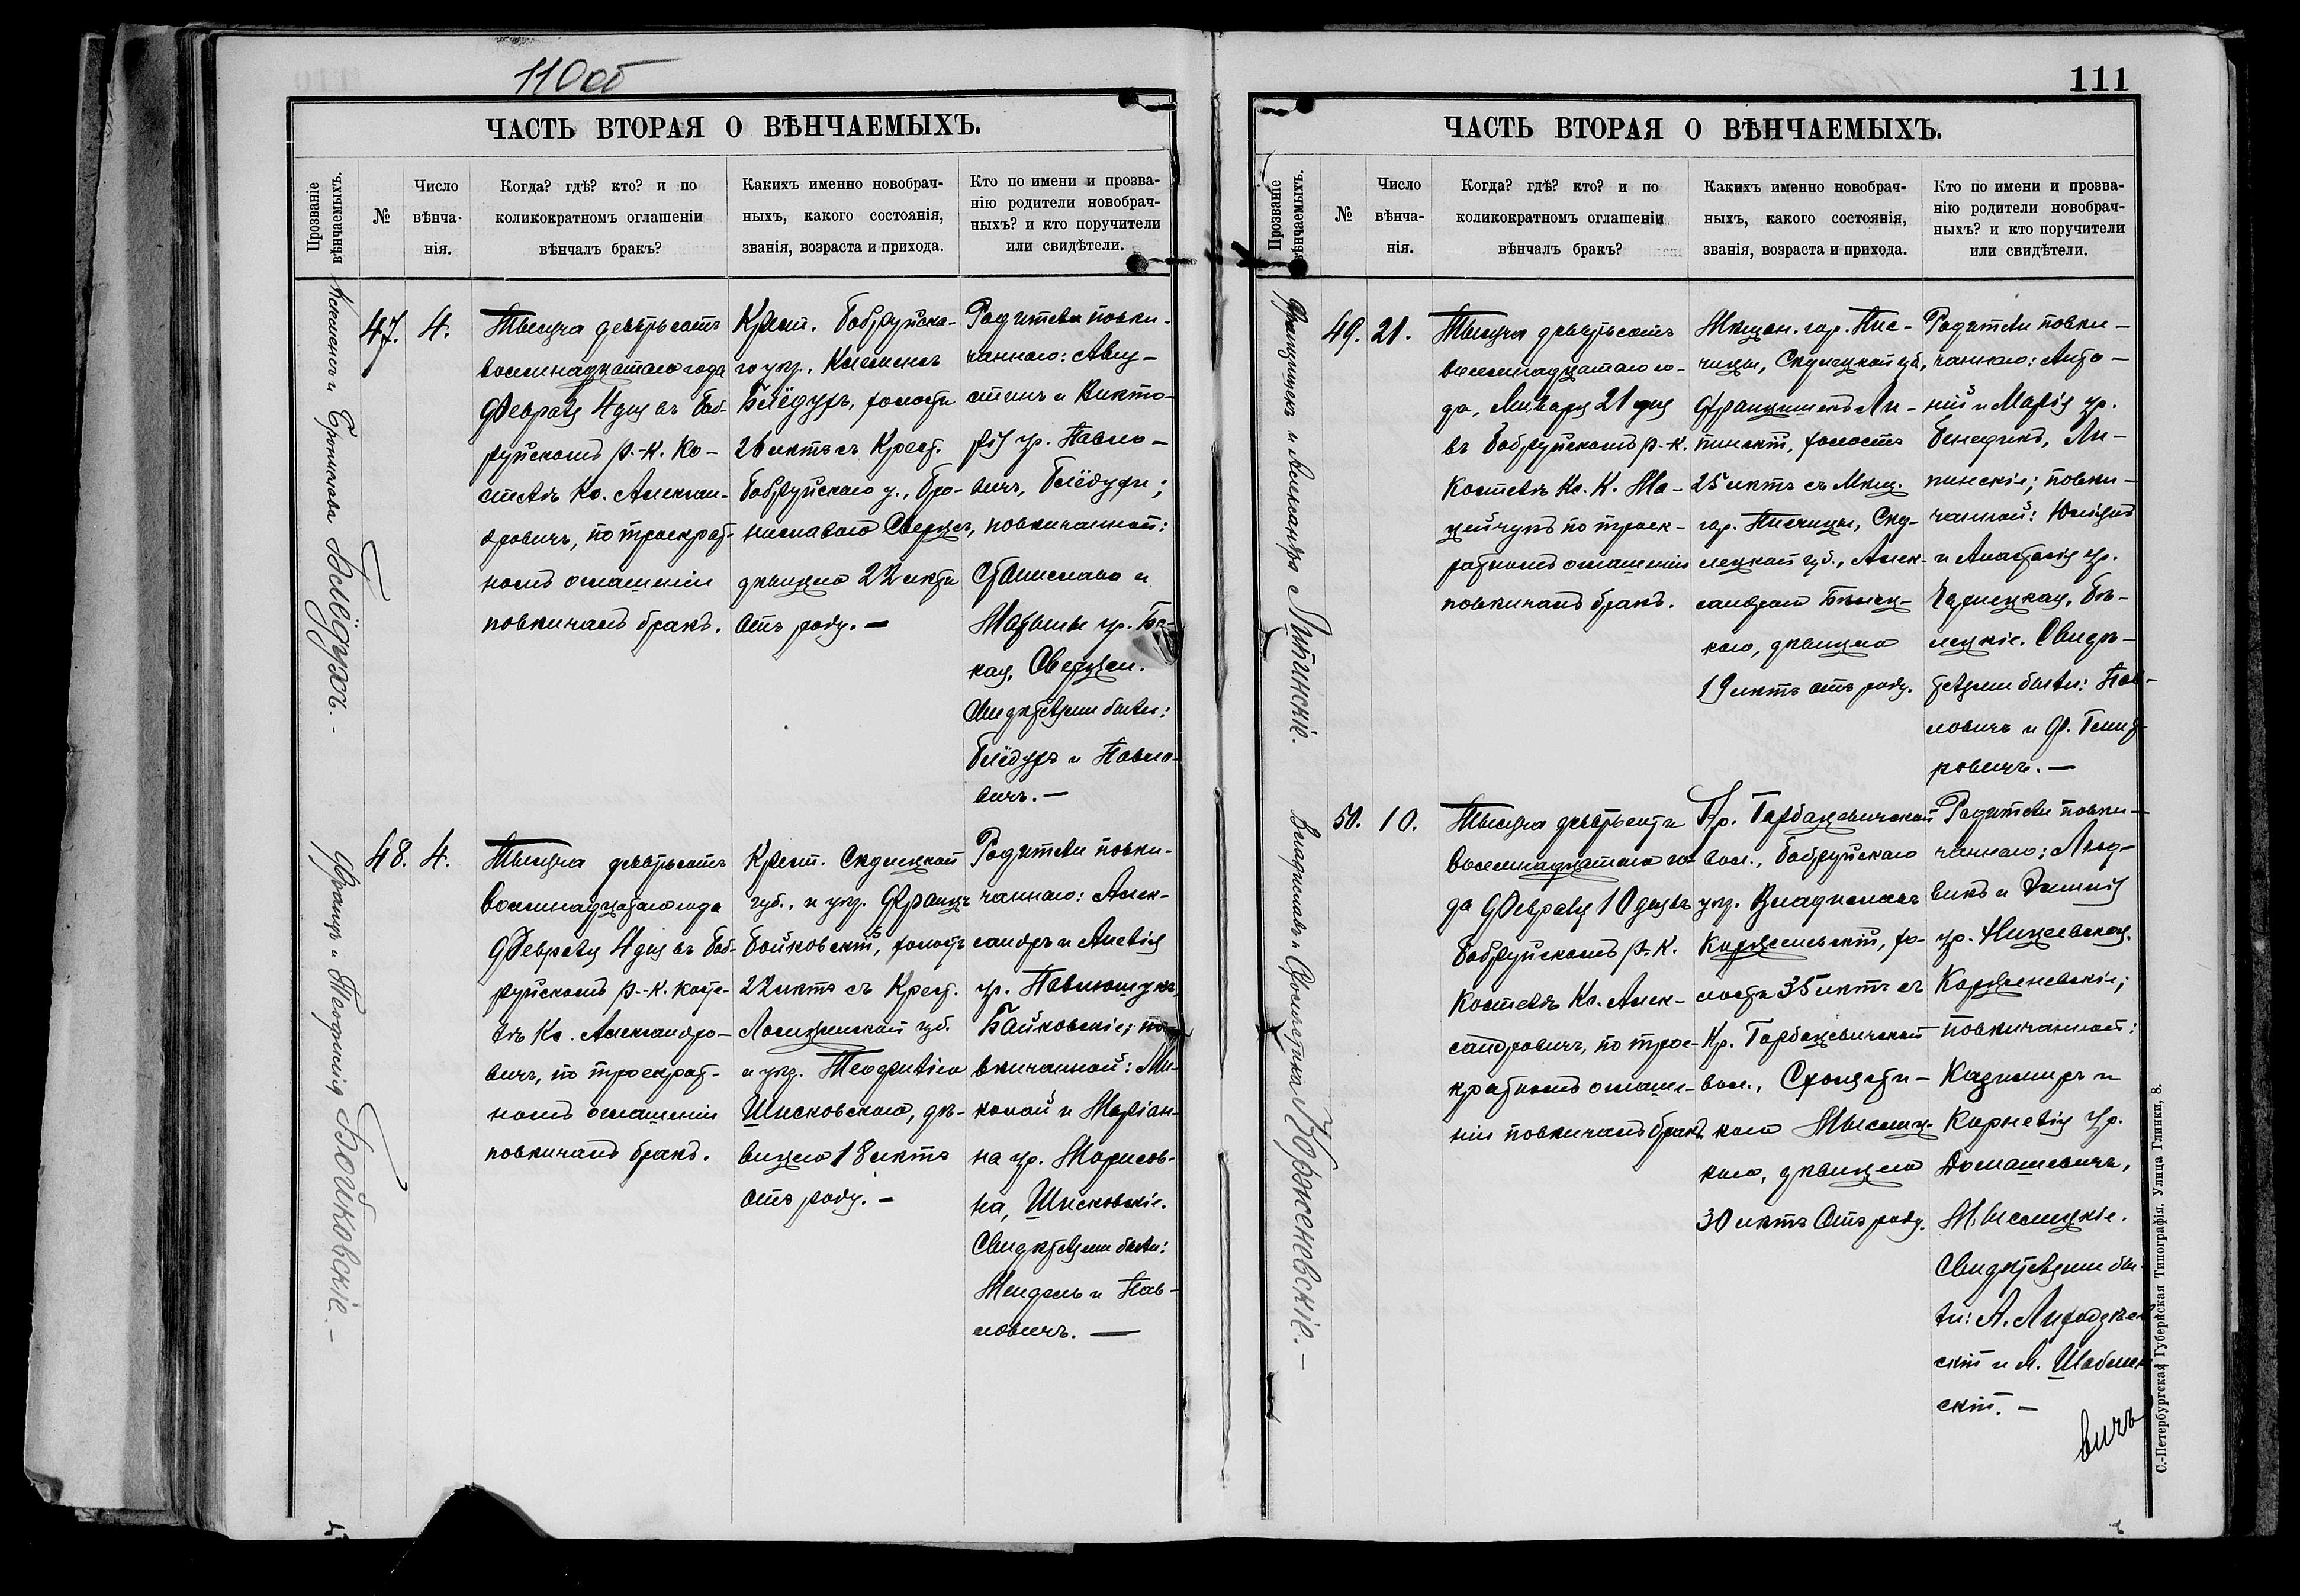 110 об
ЧАСТЬ ВТОРАЯ О ВѢНЧАЕМЫХЪ.
Прозваніе
вѣнчаемыхъ.
№
Число
вѣнча-
нія.
Когда? гдѣ? кто? и по
коликократномъ оглашеніи
вѣнчалъ бракъ?
Какихъ именно новобрач-
ныхъ, какого состоянія,
званія, возраста и прихода.
Кто по имени и прозва-
нію родители новобрач-
ныхъ? и кто поручители
или свидѣтели.
и Бронислава
47.
4.
Тысяча девятьсотъ
восемнадцатаго года
Февраля 4 дня въ Боб-
руйскомъ р.-к. Ко-
стелѣ Кс. Алексан-
дровичъ, по троекрат-
номъ оглашеніи
повѣнчалъ бракъ.
Крест. Бобруйска-
го уѣз.
холостъ
26 лѣтъ съ Крест.
Бобруйскаго у., Бро-
ниславою
дѣвицею 22 лѣтъ
отъ роду. —
Родители повѣн-
чаннаго: Авгу-
стинъ и Викто-
рія ур. Павло-
вичъ,
повѣнчанной:
Станиславъ и
ур.
Свидѣтелями были:
и Павло-
вичъ. —
Францъ и Теофилія Бойковскіе. —
48.
4.
Тысяча девятьсотъ
восемнадцатаго года
Февраля 4 дня въ Боб-
руйскомъ р.-к. Косте-
лѣ Кс. Александро-
вичъ, по троекрат-
номъ оглашеніи
повѣнчалъ бракъ.
Крест. Сѣдлецкой
губ., и уѣз. Францъ
Бойковскій, холостъ
22 лѣтъ съ Крест.
Ломжинской губ.
и уѣз. Теофилією
Шисковскою, дѣ-
вицею 18 лѣтъ
отъ роду. —
Родители повѣн-
чаннаго: Алек-
сандръ и
ур.
Бойковскіе; по-
вѣнчанной: Ми-
колай и Маріан-
на ур.
на, Шисковскіе.
Свидѣтелями были:
Мендель и Пав-
ловичъ. —
111
ЧАСТЬ ВТОРАЯ О ВѢНЧАЕМЫХЪ.
Прозваніе
вѣнчаемыхъ.
№
Число
вѣнча-
нія.
Когда? гдѣ? кто? и по
коликократномъ оглашеніи
вѣнчалъ бракъ?
Какихъ именно новобрач-
ныхъ, какого состоянія,
званія, возраста и прихода.
Кто по имени и прозва-
нію родители новобрач-
ныхъ? и кто поручители
или свидѣтели.
Францишекъ и Александра Липинскіе.
49.
21.
Тысяча девятьсотъ
восемнадцатаго го-
да, Января 21 дня
въ Бобруйскомъ р.-к.
Костелѣ Кс. К. Ма-
цейчукъ по троек-
ратномъ оглашеніи
повѣнчалъ бракъ.
Мѣщан. гор. Пис-
чицы, Сѣдлецкой губ.,
Францишекъ Ли-
пинскій, холостъ
25 лѣтъ съ Мѣщ.
гор. Писчицы, Сѣд-
лецкой губ., Алек-
сандрою Бѣлец-
кою, дѣвицею
19 лѣтъ отъ роду.
Родители повѣн-
чаннаго: Анто-
ній и Марія ур.
Бенедикъ, Ли-
пинскіе; повѣн-
чанной: Юліанъ
и Анастасія ур.
Бѣ-
лецкіе. Свидѣ-
телями были: Пав-
ловичъ и Ф.
ровичъ. —
Владиславъ и Корженевскіе. —
50.
10.
Тысяча девятьсотъ
восемнадцатаго го-
да Февраля 10 дня въ
Бобруйскомъ р.-к.
Костелѣ Кс. Алек-
сандровичъ, по трое-
кратномъ оглаше-
ніи повѣнчалъ бракъ.
Кр. Горбацевичской
вол., Бобруйскаго
уѣз. Владиславъ
Корженевскій, хо-
лостъ 35 лѣтъ съ
Кр. Горбацевичской
вол.,
кою Мыслиц-
кою, дѣвицею
30 лѣтъ отъ роду.
Родители повѣн-
чаннаго: Люд-
викъ и Эмилія
ур.
Корженевскіе;
повѣнчанной:
Казимиръ и
Корнелія ур.
Домашевичъ,
Мыслицкіе.
Свидѣтелями бы-
ли: А.
скій и А.
скій. —
вичъ
С.-Петербургская Губернская Типографія. Улица Глинки, 8.